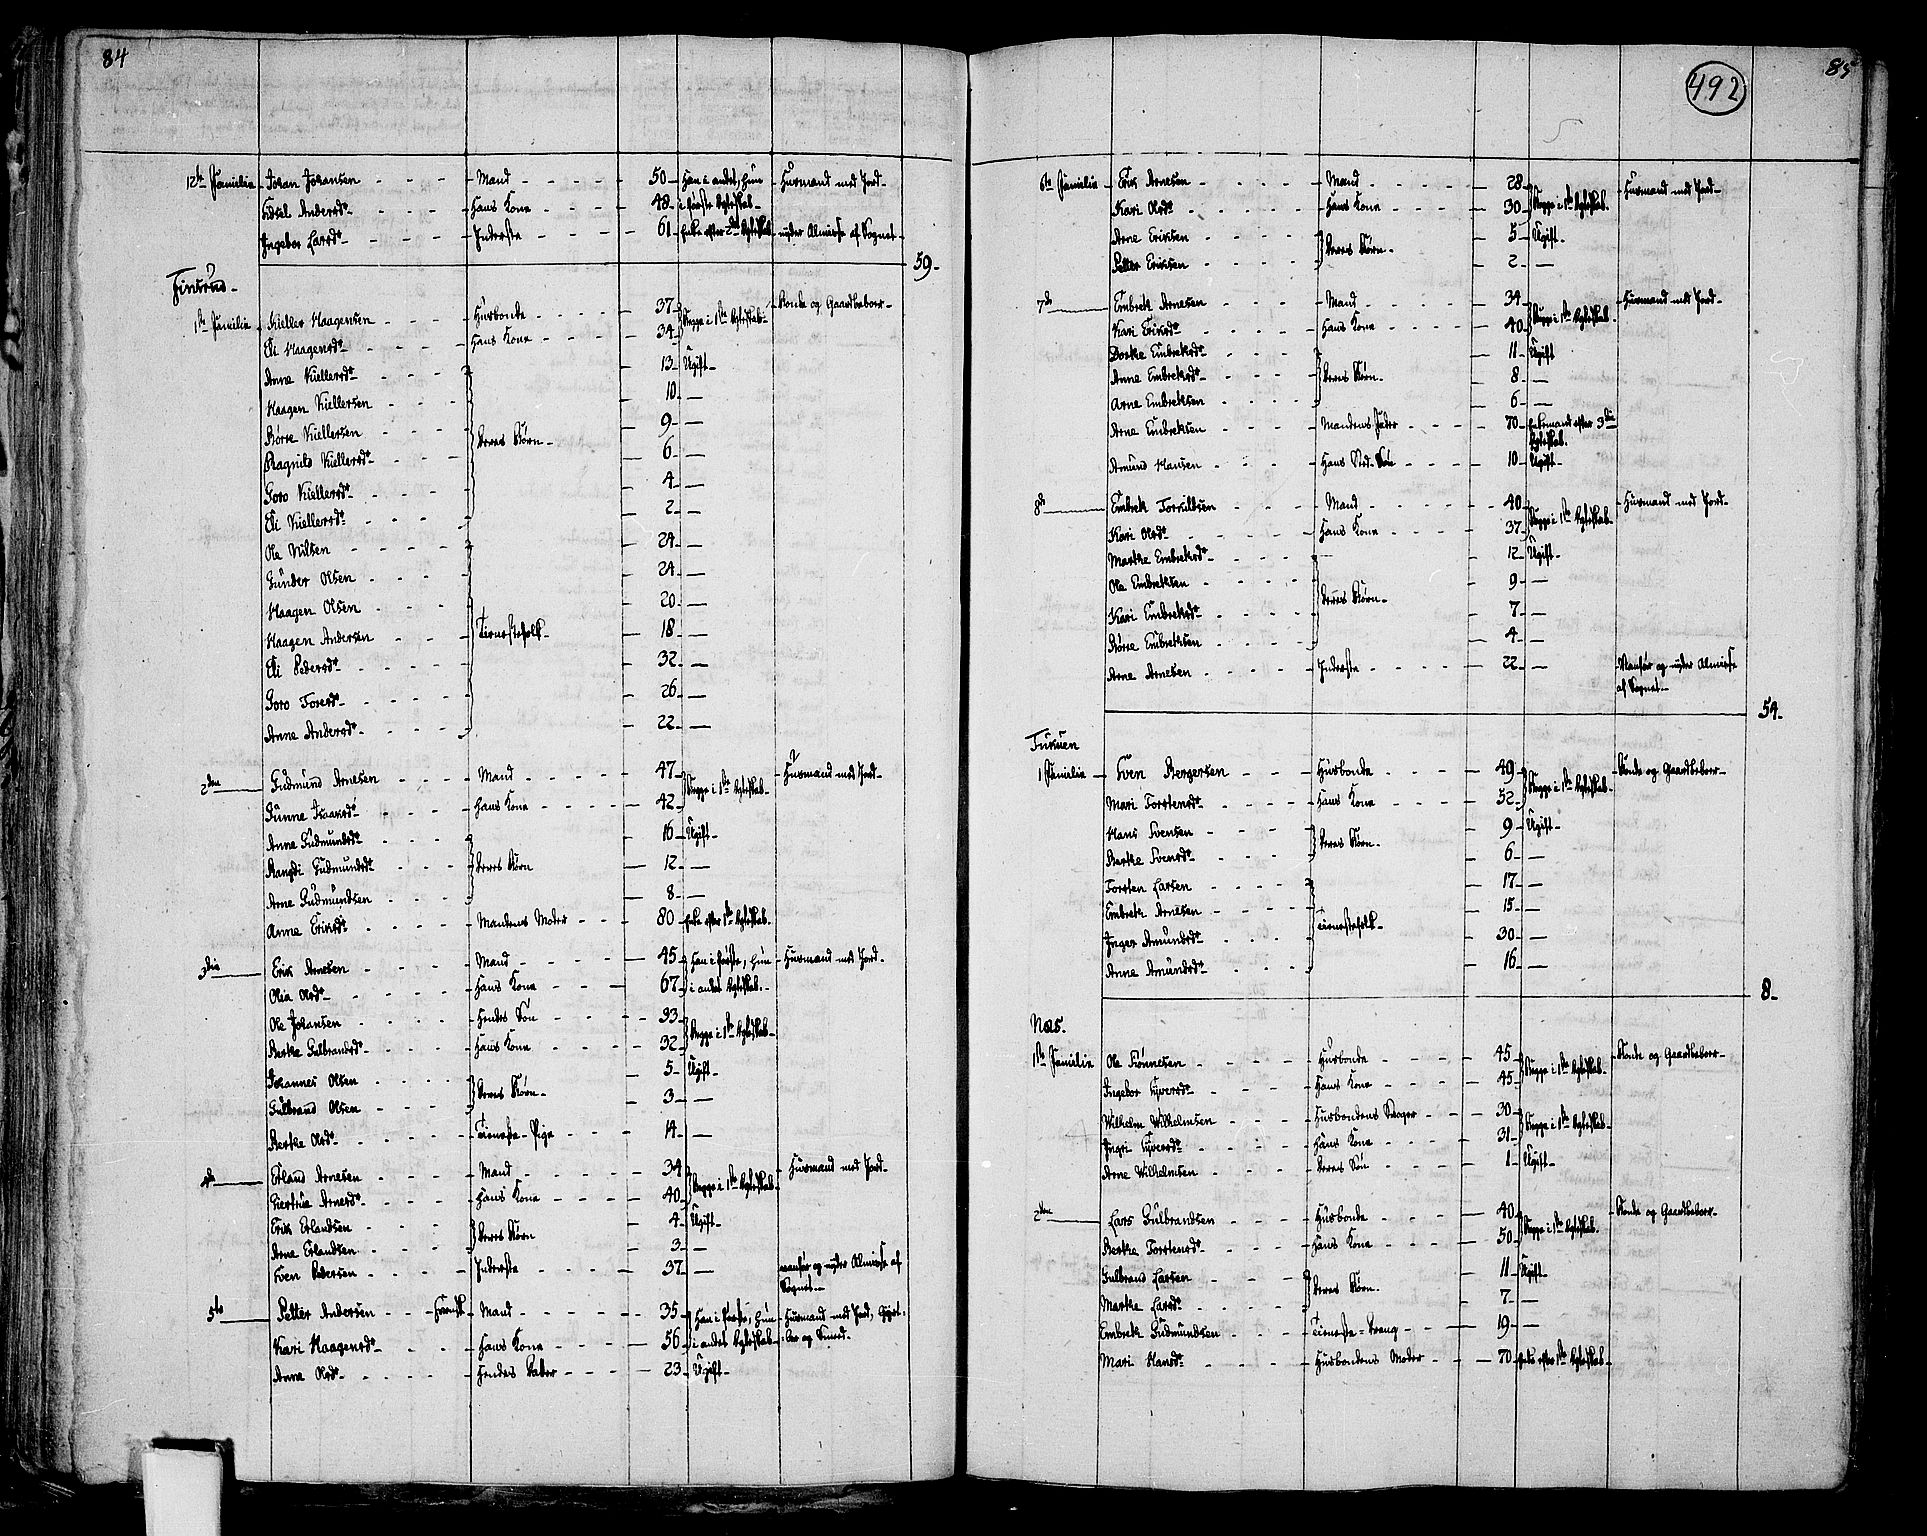 84
12te Familie Johan Johansen Mand 50 Han i andet, hun Huusmand med Jord
Sidsel Andersdr Hans Kone 48 i første Ægteskab
Ingebor Larsdr Inderste 61 Enke efter 2det Ægteskab nyder Almisse af Sognet
59
Finsrud
1te Familie Kieller Haagensen Husbonde 37 Begge i 1te Ægteskab Bonde og Gaardbeboer
Eli Haagensdr Hans Kone 34
Anne Kiellersdr 13 Ugift
Haagen Kiellersen 10 —
Børre Kiellersen Deres Børn 9 —
Ragnild Kiellersdr 6 —
Goro Kiellersdr 4 —
Eli Kiellersdr 2 —
Ole Nilsen 24 —
Gunder Olsen 24 —
Haagen Olsen 20 —
Haagen Andersen Tienestefolk 18 —
Eli Pedersdr 32 —
Goro Toresdr 26 —
Anne Andersdr 22 —
2den Gudmund Arnesen Mand 47 Begge i 1te Ægteskab Huusmand med Jord
Gunne Isaacsdr Hans Kone 42
Anne Gudmundsdr 16 Ugift
Rangdi Gudmundsdr Deres Børn 12 —
Arne Gudmundsen 8 —
Anne Eriksdr Mandens Moder 80 Enke efter 1te Ægteskab
3die Erik Arnesen Mand 45 Han i første, hun Huusmand med Jord
Olia Olsdr Hans Kone 67 i andet Ægteskab
Ole Johansen Hendes Søn 33 Begge i 1te Ægteskab
Berthe Gulbrandsdr Hans Kone 32
Johannes Olsen Deres Børn 5 Ugift
Gulbrand Olsen 3 —
Berthe Olsdr Tieneste-Pige 14 —
4de Erland Arnesen Mand 34 Begge i 1te Ægteskab Huusmand med Jord
Giertrue Arnesdr Hans Kone 40
Erik Erlandsen Deres Børn 4 Ugift
Arne Erlandsen 3 —
Sven Pedersen Inderste 37 — vanfør og nyder Almisse af
Sognet
5te Petter Andersen Svensk Mand 35 Han i første, hun Huusmand med Jord,
Kari Haagensdr Hans Kone 56 i andet Ægteskab og Smed
Anne Olsdr Hendes Datter 23 Ugift
492
85
6te Familie Erik Arnesen Mand 28 Begge i 1te Ægteskab Huusmand med Jord
Kari Olsdr Hans Kone 30
Arne Eriksen Deres Børn 5 Ugift
Petter Eriksen 2 —
7de Embrek Arnesen Mand 34 Begge i 1te Ægteskab Huusmand med Jord
Kari Eriksdr Hans Kone 40
Dorthe Embreksdr 11 Ugift
Anne Embreksdr Deres Børn 8 —
Arne Embreksen 6 —
Arne Embreksen Mandens Fader 70 Enkemand efter 3die
Ægteskab
Amund Hansen Hans Sted-Søn 10 Ugift
8de Embrek Torkildsen Mand 40 Begge i 1te Ægteskab Huusmand med Jord
Kari Olsdr Hans Kone 37
Marthe Embreksdr 12 Ugift
Ole Embreksen Deres Børn 9 —
Kari Embreksdr 7 —
Børre Embreksen 4 —
Arne Arnesen Inderste 22 — Vanfør og nyder Almisse
af Sognet
54
Tukuen
1 Familie Sven Bergersen Husbonde 49 Begge i 1te Ægteskab Bonde og Gaardbeboer
Mari Torstensdr Hans Kone 52
Hans Svensen Deres Børn 9 Ugift
Berthe Svensdr 6 —
Torsten Larsen 17 —
Embrek Arnesen Tienestefolk 15 —
Inger Amundsdr 30 —
Anne Amundsdr 16 —
8
Næs
1te Familie Ole Simensen Husbonde 45 Begge i 1te Ægteskab Bonde og Gaardbeboer
Ingebor Syversdr Hans Kone 45
Wilhelm Wilhelmsen Husbondens Svoger 30 Begge i 1te Ægteskab
Ingri Syversdr Hans Kone 31
Arne Wilhelmsen Deres Søn 1 Ugift
2den Lars Gulbrandsen Husbonde 40 Begge i 1te Ægteskab Bonde og Gaardbeboer
Berthe Torstensdr Hans Kone 50
Gulbrand Larsen Deres Børn 11 Ugift
Marthe Larsdr 7 —
Embrek Gudmundsen Tieneste-Dreng 19 —
Mari Hansdr Husbondens Moder 70 Enke efter 1te Ægteskab